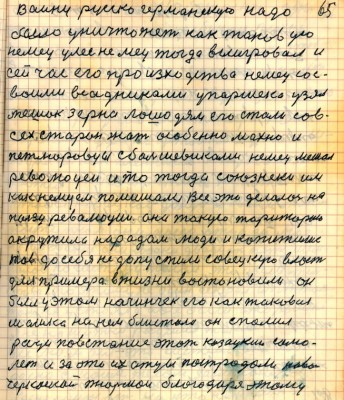 Вайну русско германскую надо 65
было уничтожет как таковую
немец улес не мец тогда выигровал и
сей час его произходства немец сос-
воими всадниками упаршека узял
мешок зерна лошодям его стали сов-
сех старон жат особенно махно и
петлюровцы сбалшевиками немец мешал
революцеи ито тогда союзнеки им
как немцем помишали Все это делалос на
ползу революцеи они такую тариторию
акрутили народам люди и копитишис
тов до себя не допустили совецкую власт
для примера вжизни востоновили он
был уэтом начинген его как таковии
шапика на нем блистала он спалил
ради повстание этот казацкий само-
лет и за это их атцы пострадали ново
черкаской тюрмои благодаря этому